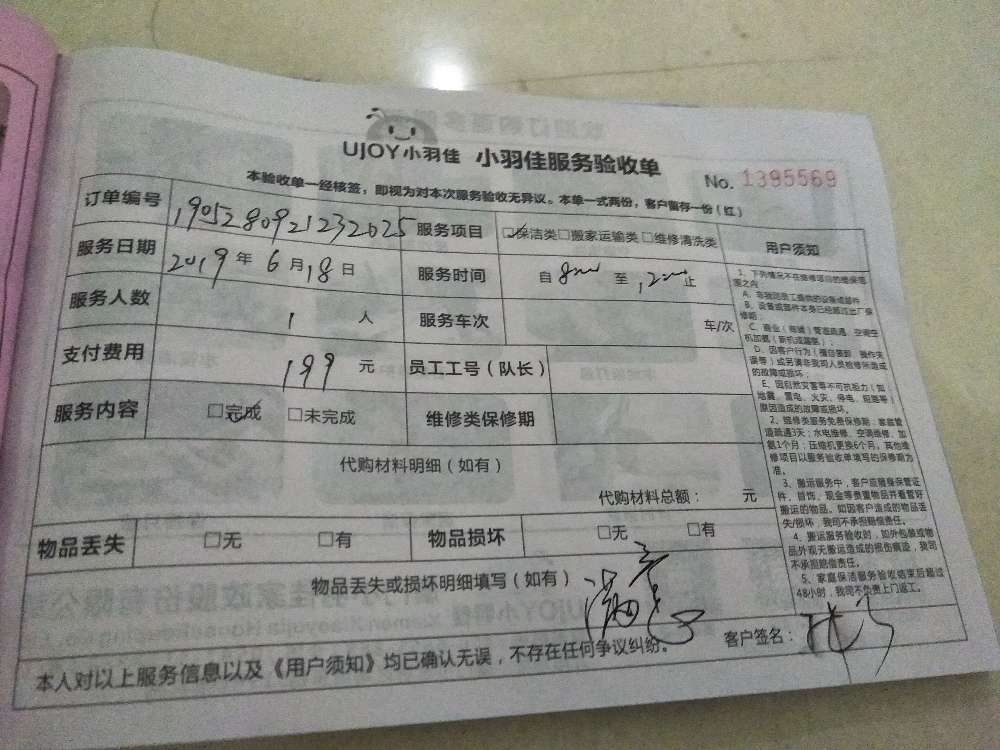 UJOY小羽佳 小羽佳服务验收单
No. 1395569
本验收单一经核签，即视为对本次服务验收无异议。本单一式两份，客户留存一份（红）
订单编号 190528092123 2025 服务项目 ☑保洁类□搬家运输类□维修清洗类 用户须知
服务日期 2019年6月18日 服务时间 自 8 至 12 止
服务人数 1 人 服务车次 车/次
支付费用 199 元 员工工号（队长）
服务内容 ☑完成 □未完成 维修类保修期
代购材料明细（如有）
代购材料总额： 元
物品丢失 □无 □有 物品损坏 □无 □有
物品丢失或损坏明细填写（如有） 满意
1、下列情况不在维修项目的维保范
围之内
A、非我司员工提供的设备或部件
B、设备或部件本身已经超过出厂保
修期；
C、商业（商铺）管道疏通、空调空
机加氨（新机或漏氨）；
D、因客户行为（擅自装卸、操作失
误等）或另请非我司人员检修所造成
的故障或损坏；
E、因自然灾害等不可抗拒力（如：
地震、雷电、火灾、停电、短路等）
原因造成的故障或损坏。
2、维修类服务免费保修期，家庭管
道疏通3天；水电维修、空调维修、加
氨1个月；压缩机更换6个月。其他维
修项目以服务验收单填写的保修期为
准。
3、搬运服务中，客户应随身保管证
件、首饰、现金等贵重物品并看管好
搬运的物品。如因客户造成的物品丢
失/损坏，我司不承担赔偿责任。
4、搬运服务验收时，如外包装或物
品外观无搬运造成的损伤痕迹，我司
不承担赔偿责任。
5、家庭保洁服务验收结束后超过
48小时，我司不负责上门返工。
本人对以上服务信息以及《用户须知》均已确认无误，不存在任何争议纠纷。 客户签名：